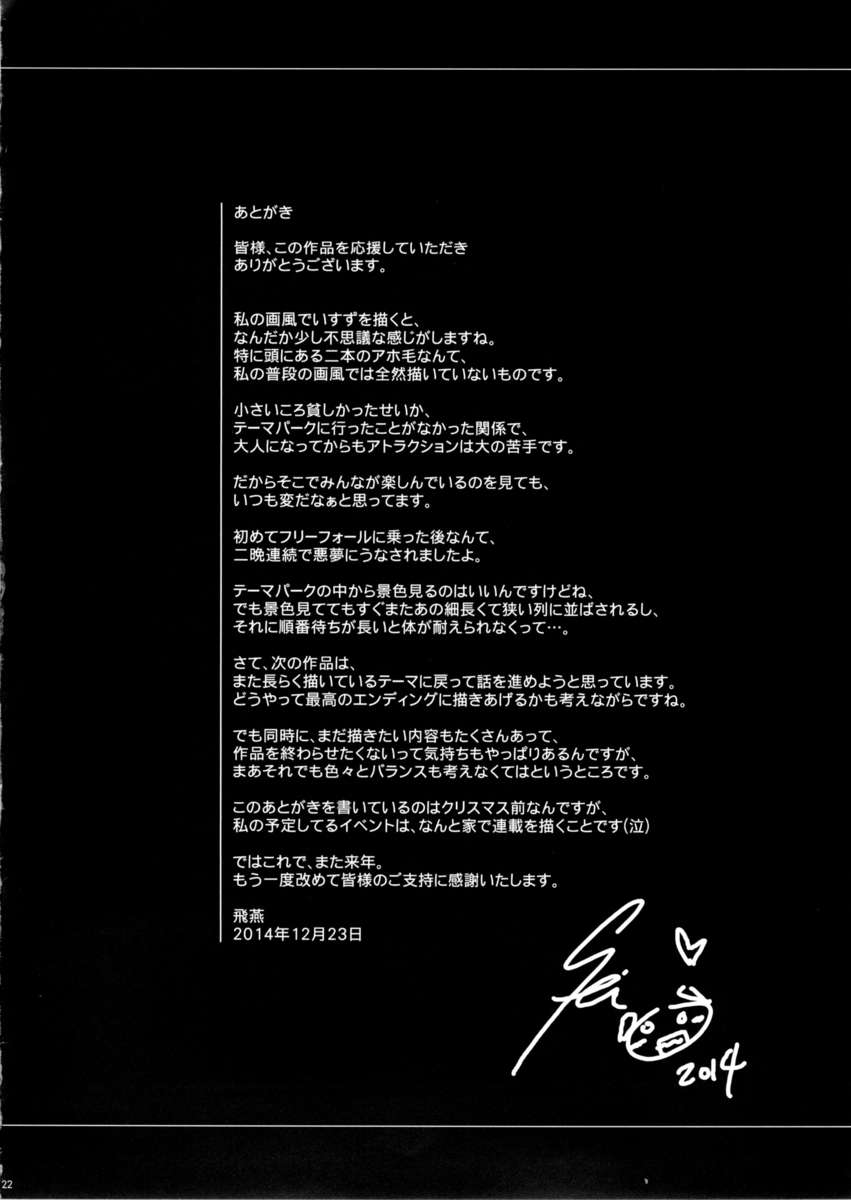 あとがき
皆様、この作品を応援していただき
ありがとうございます。
私の画風でいすずを描くと、
なんだか少し不思議な感じがしますね。
特に頭にある二本のアホ毛なんて、
私の普段の画風では全然描いていないものです。
小さいころ貧しかったせいか、
テーマパークに行ったことがなかった関係で、
大人になってからもアトラクションは大の苦手です。
だからそこでみんなが楽しんでいるのを見ても、
いつも変だなぁと思ってます。
初めてフリーフォールに乗った後なんて、
二晩連続で悪夢にうなされましたよ。
テーマパークの中から景色見るのはいいんですけどね、
でも景色見ててもすぐまたあの細長くて狭い列に並ばされるし、
それに順番待ちが長いと体が耐えられなくって…。
さて、次の作品は、
また長らく描いているテーマに戻って話を進めようと思っています。
どうやって最高のエンディングに描きあげるかも考えながらですね。
でも同時に、まだ描きたい内容もたくさんあって、
作品を終わらせたくないって気持ちもやっぱりあるんですが、
まあそれでも色々とバランスも考えなくてはというところです。
このあとがきを書いているのはクリスマス前なんですが、
私の予定してるイベントは、なんと家で連載を描くことです(泣)
ではこれで、また来年。
もう一度改めて皆様のご支持に感謝いたします。
飛燕
2014年12月23日
Fei
2014
22